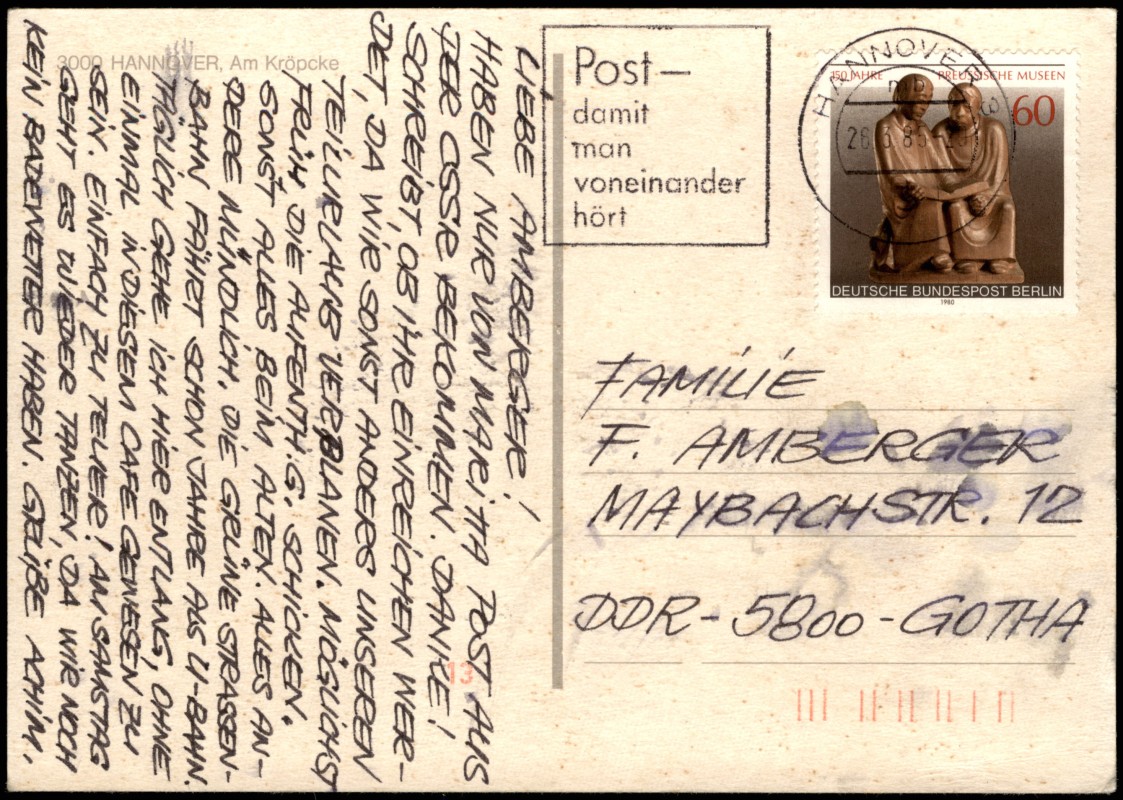 3000 HANNOVER, Am Kröpcke
LIEBE AMBERGER!
HABEN NUR VON MARITTA POST AUS
DER CSSR BEKOMMEN. DANKE!
SCHREIBT, OB IHR EINREICHEN WER-
DET, DA WIR SONST ANDERS UNSEREN
TEILURLAUB VERPLANEN. MÖGLICHST
FRÜH DIE AUFENTH.G. SCHICKEN.
SONST ALLES BEIM ALTEN. ALLES AN-
DERE MÜNDLICH. DIE GRÜNE STRASSEN-
BAHN FÄHRT SCHON JAHRE ALS U-BAHN.
TÄGLICH GEHE ICH HIER ENTLANG, OHNE
EINMAL IN DIESEM CAFE GEWESEN ZU
SEIN. EINFACH ZU TEUER! AM SAMSTAG
GEHT ES WIEDER TANZEN, DA WIR NOCH
KEIN BADEWETTER HABEN. GRÜßE ACHIM.
Post –
damit
man
voneinander
hört
HANNOVER
150 JAHRE PREUSSISCHE MUSEEN
60
DEUTSCHE BUNDESPOST BERLIN
1980
FAMILIE
F. AMBERGER
MAYBACHSTR. 12
DDR-5800-GOTHA
13